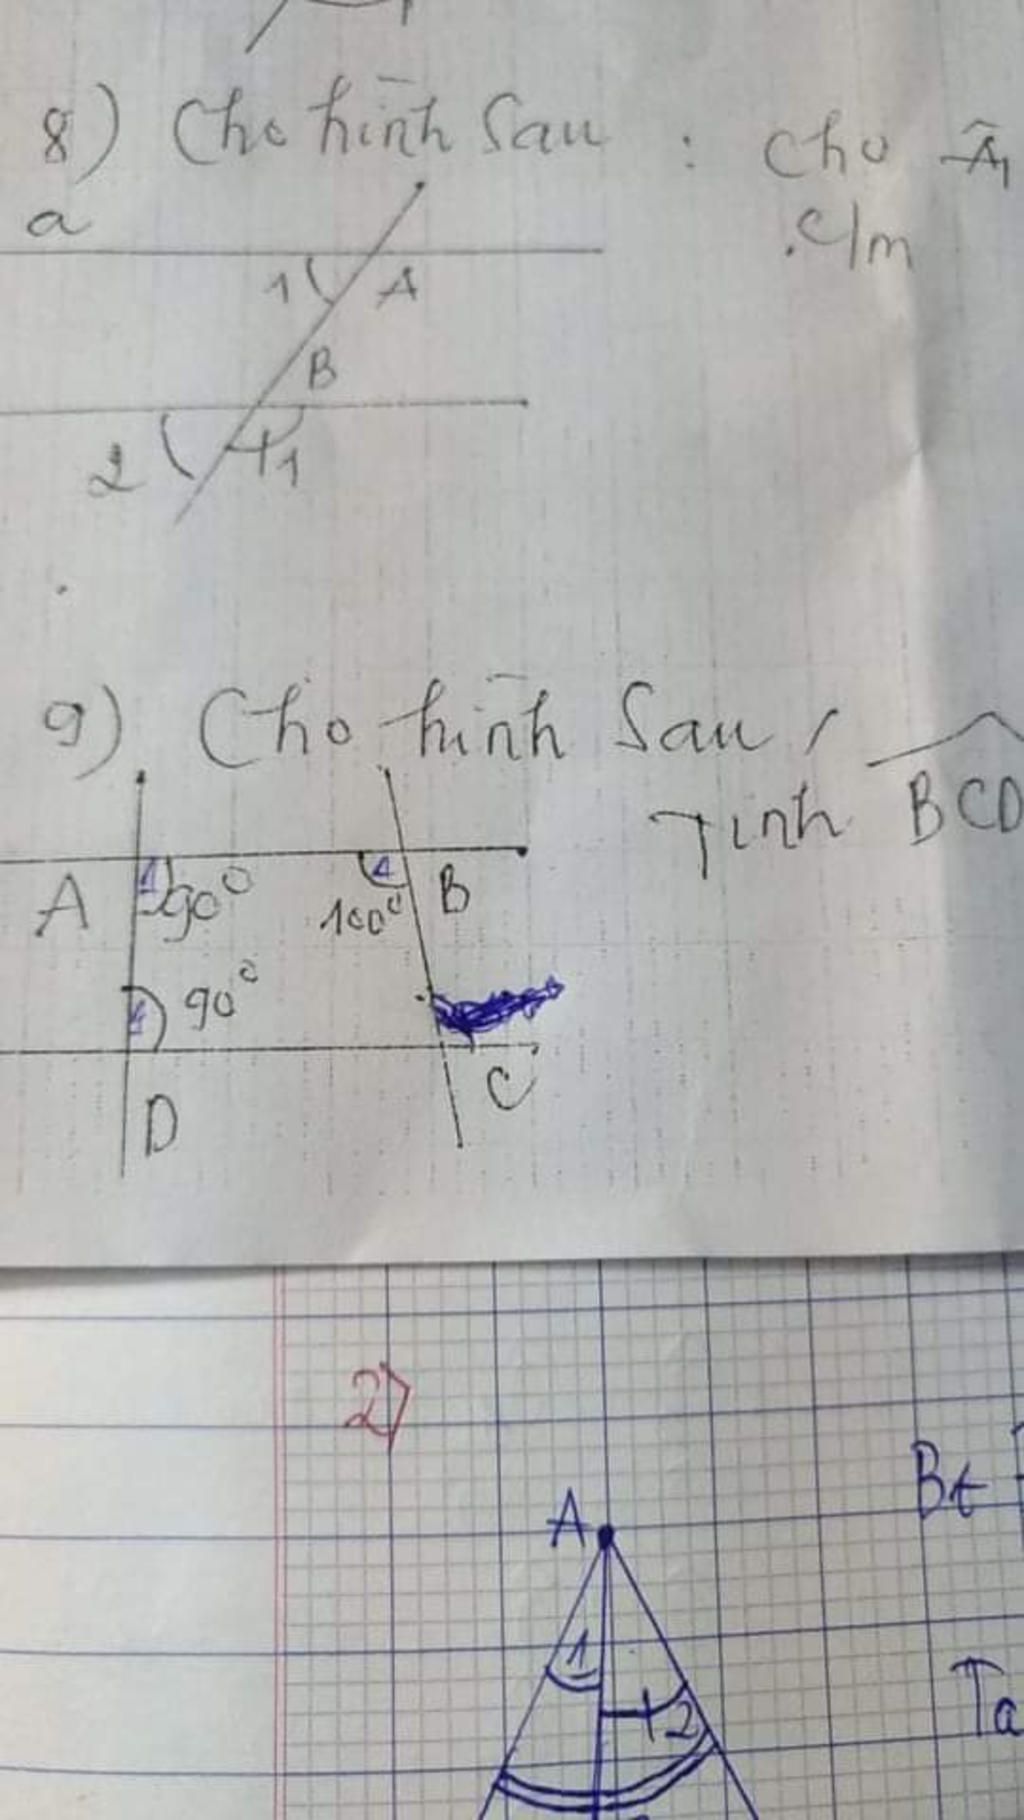 8) Cho hình sau : cho Â₁
a
. c/m
1 A
B
2 1
9) Cho hình sau,
Tính BCD
A 1 90° 100° B
1 90°
D C
2)
A
Bt
1
2
Ta